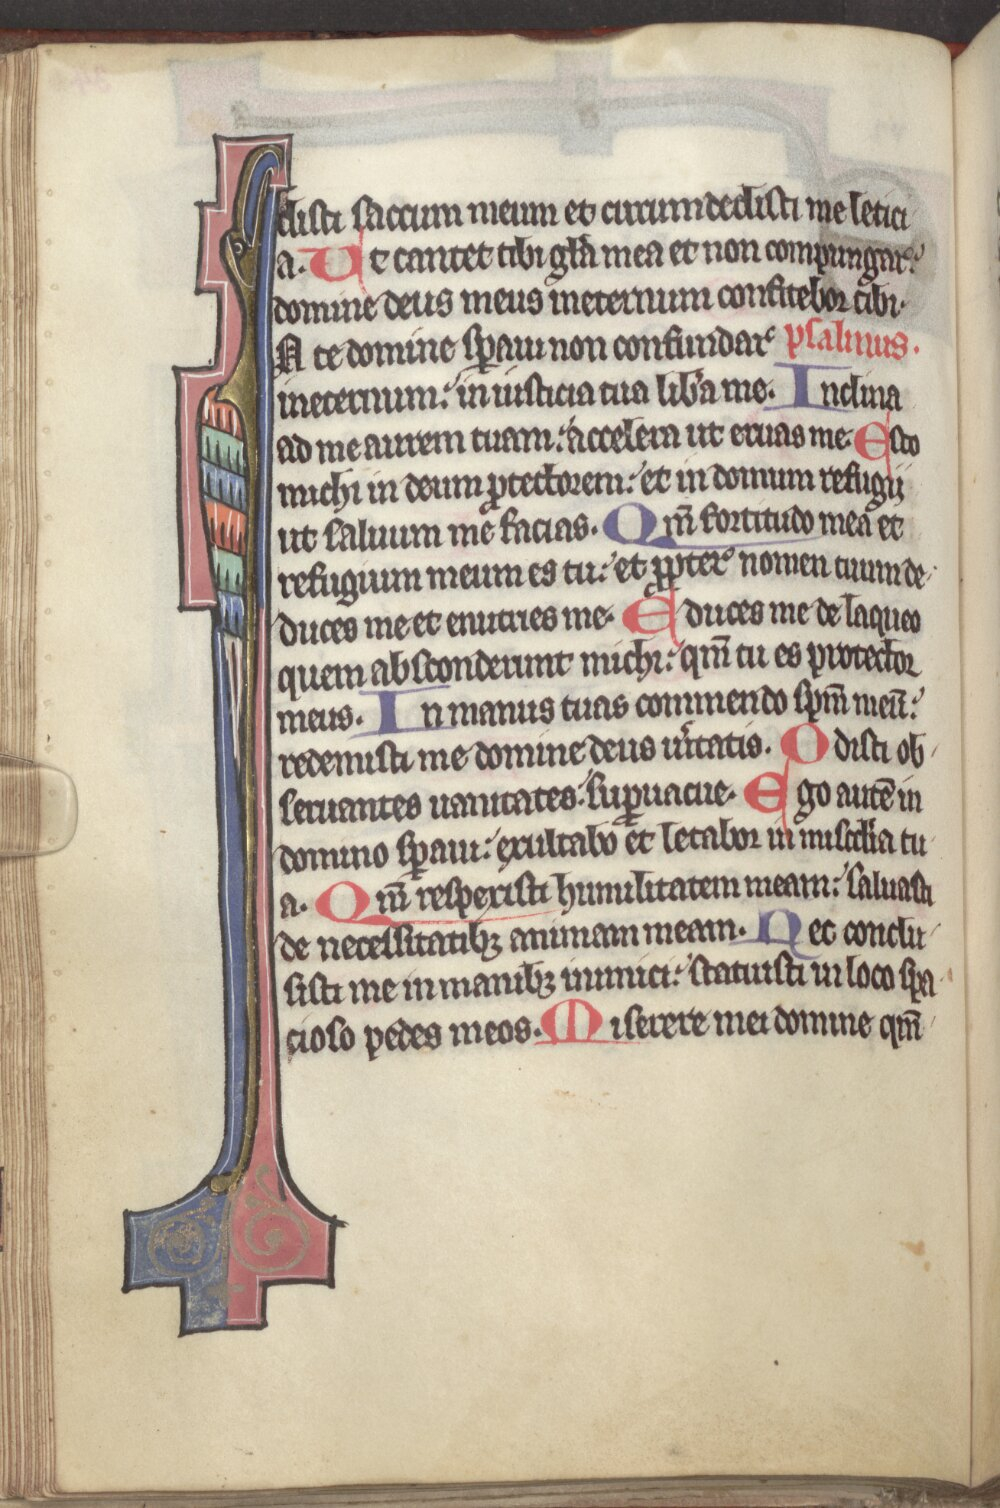 disti saccum meum et circumdedisti me letici
a. Ut cantet tibi gl̄a mea et non compungar:
domine deus meus ineternum confitebor tibi.
N te domine sp̱aui non confundar psalmus.
ineternum: in iusticia tua lib̄a me. Inclina
ad me aurem tuam: accelera ut eruas me. Esto
michi in deum p̱tectorem: et in domum refugij
ut saluum me facias. Qm̄ fortitudo mea et
refugium meum es tu: et p̱p̱ter nomen tuum de
duces me et enutries me. Educes me de laqueo
quem absconderunt michi: qm̄ tu es protector
meus. In manus tuas commendo spm̄ meū:
redemisti me domine deus ūitatis. Odisti ob
seruantes uanitates: sup̱uacue. Ego autē in
domino sp̱aui: exultabo et letabor in misc̄dia tu
a. Qm̄ respexisti humilitatem meam: saluasti
de necessitatibꝫ animam meam. Nec conclu
sisti me in manibꝫ inimici: statuisti in loco spa
cioso pedes meos. Miserere mei domine qm̄